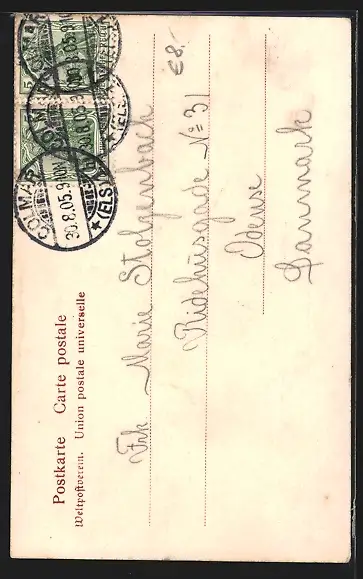 Postkarte Carte postale
Weltpostverein. Union postale universelle
COLMAR
30.8.05.9
(ELS)
5
5
€8.-
Frk Marie Stolzenbach
Ridehusgade No 31
Odense
Danmark